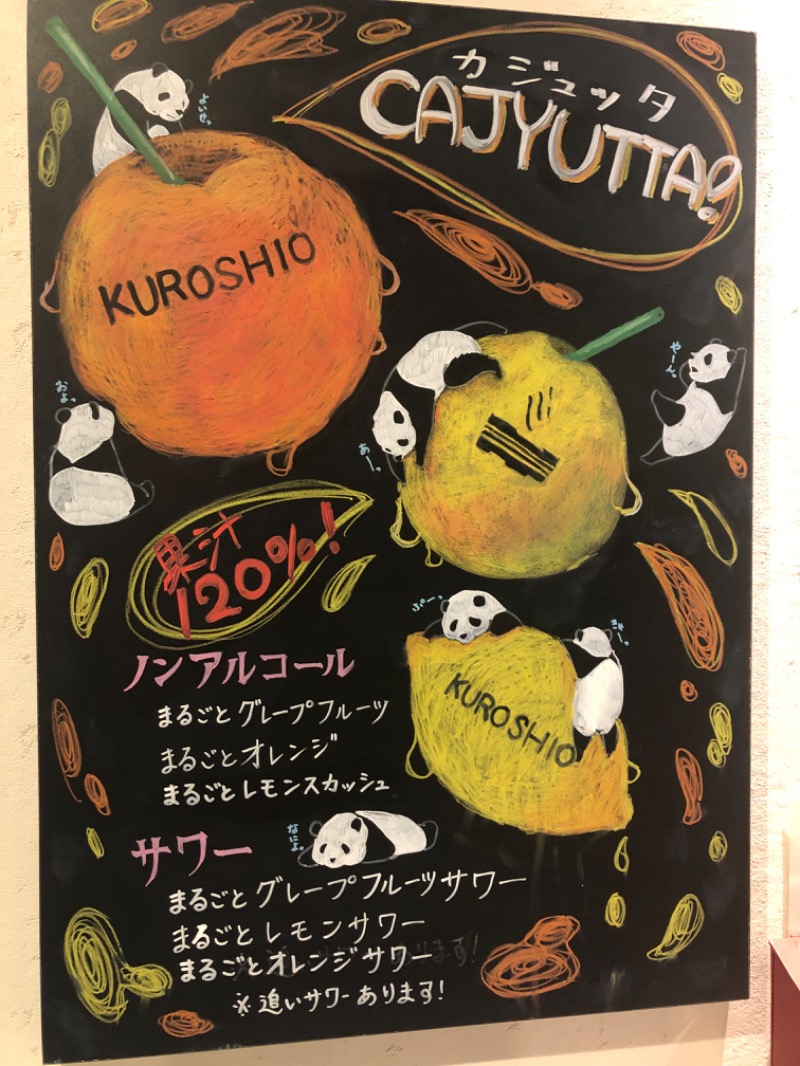 カジュッタ
CAJYUTTA!
よいせっ
KUROSHIO
おょっ
あーっ
やーん
果汁
120%!
ぷーっ
KUROSHIO
ノンアルコール
まるごとグレープフルーツ
まるごとオレンジ
まるごとレモンスカッシュ
なによっ
サワー
まるごとグレープフルーツサワー
まるごとレモンサワー
まるごとオレンジサワー
※追いサワーあります!